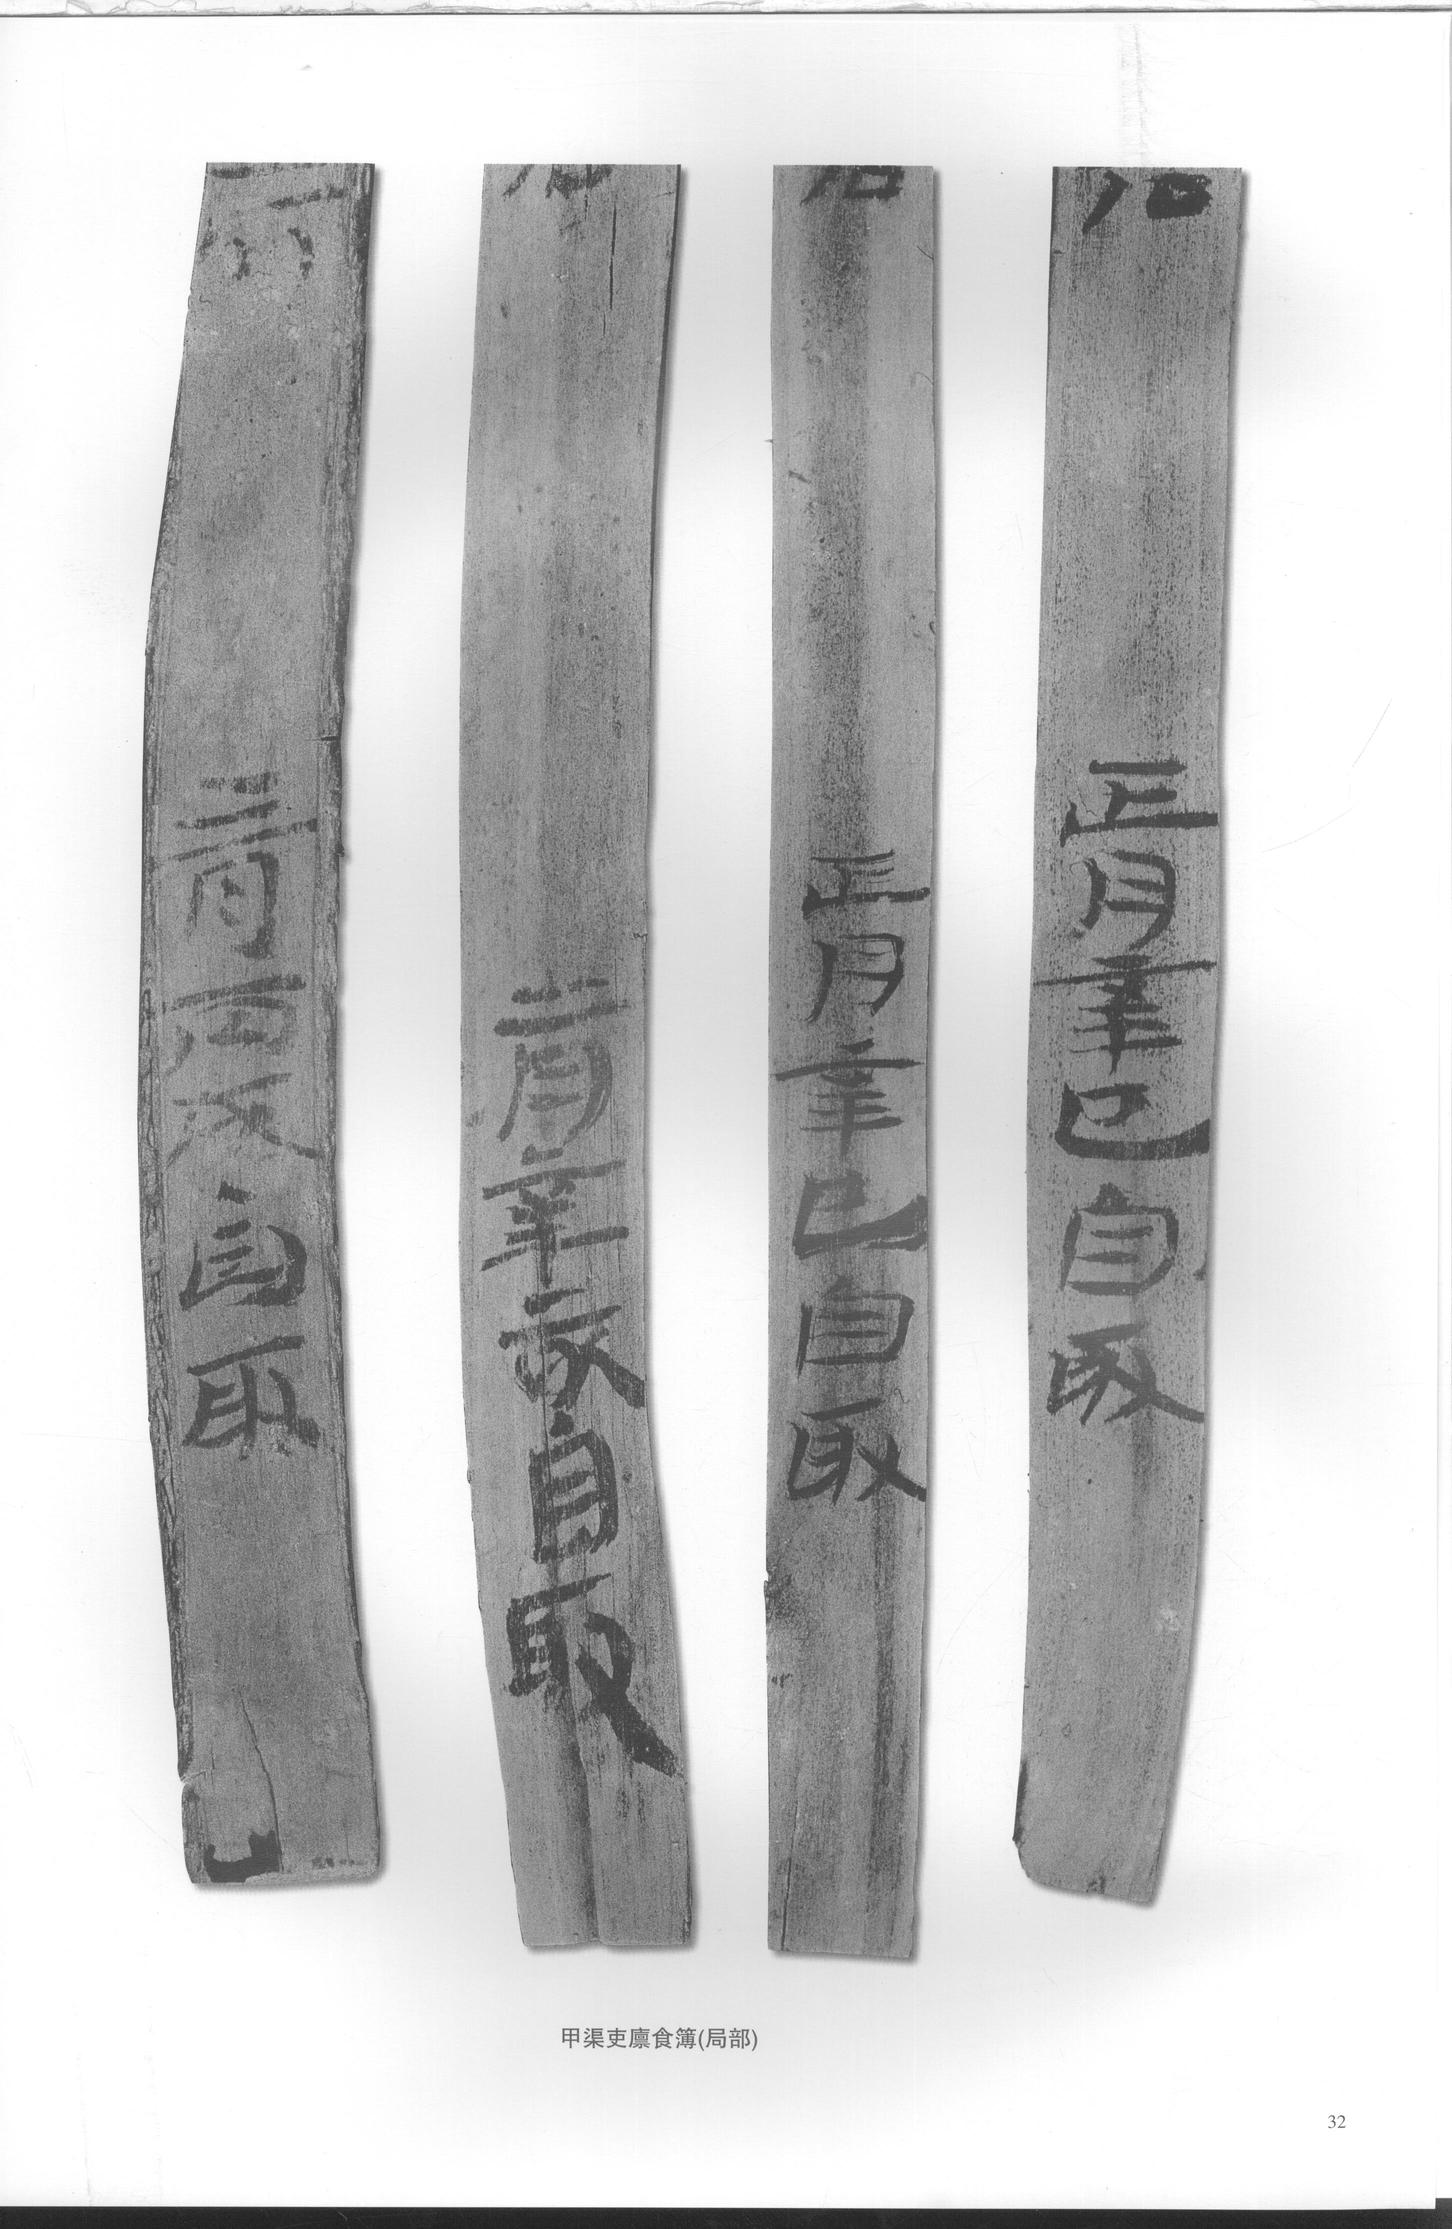 石
正月辛巳自取
石
正月辛巳自取
石
二月辛亥自取
三月丙自取
甲渠吏廩食簿(局部)
32